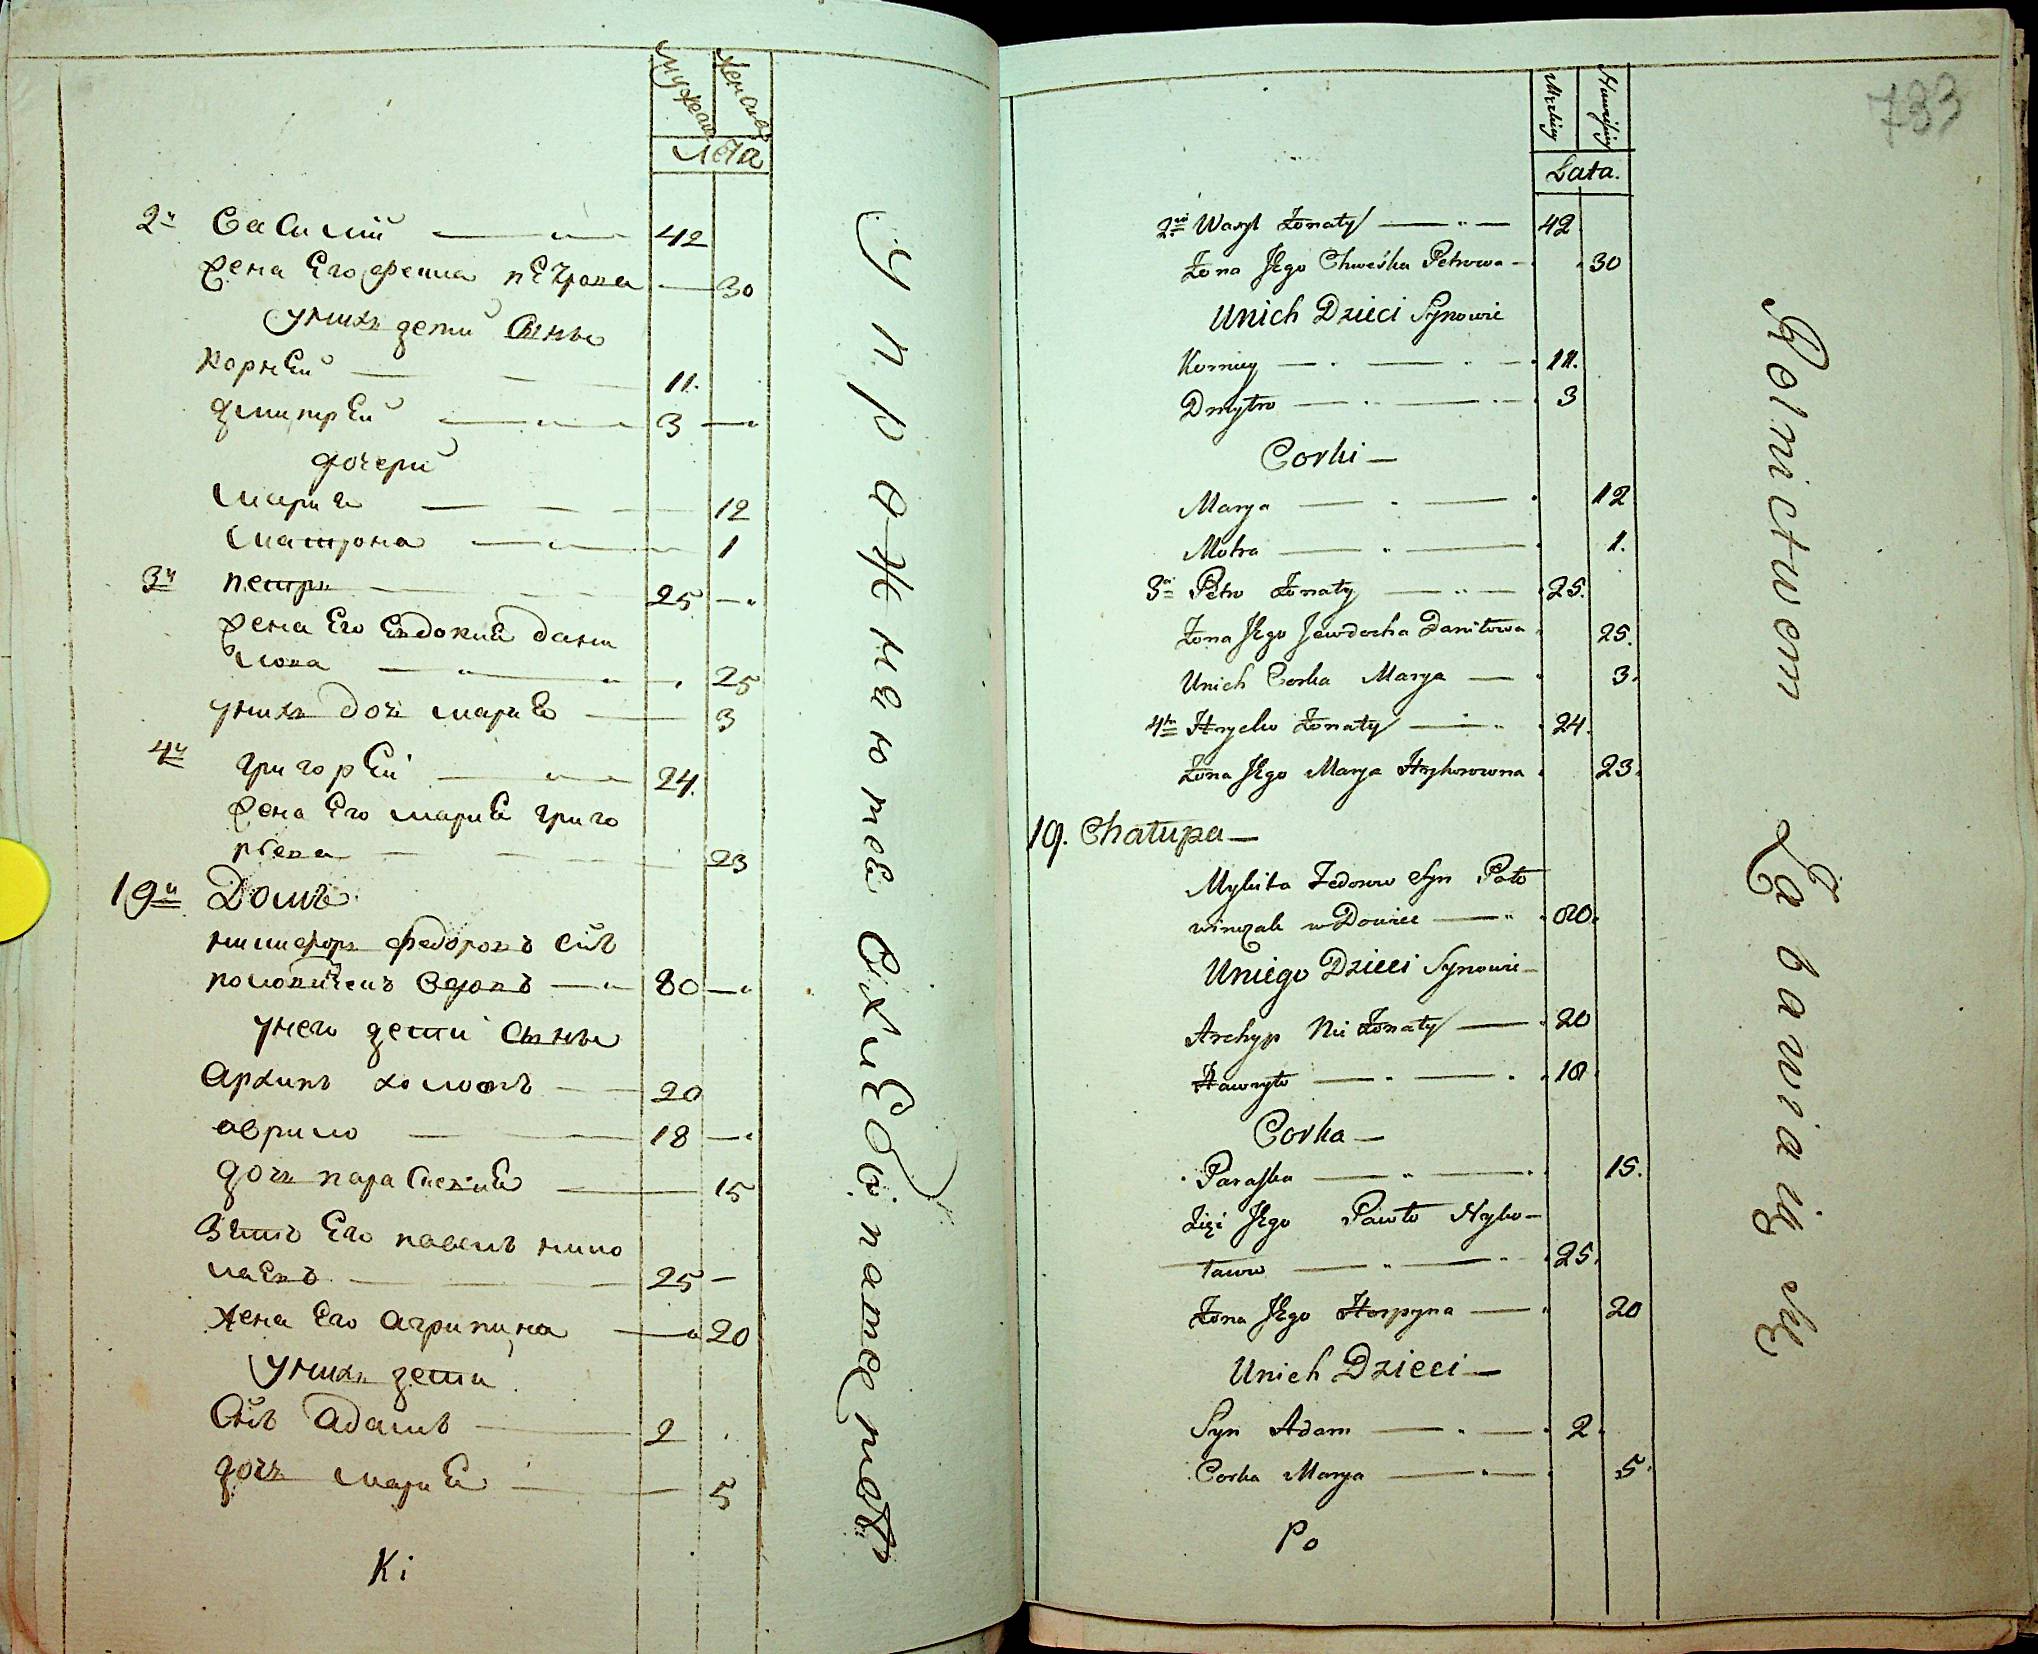 мужеска
женска
Лета
2й Василий 42
жена Его феима пЕтрова 30
уних дети сыны
корнЕй 11.
дмитрЕй 3
дочери
мариѣ 12
матрона 1
3й петръ 25
жена Его Евдокиѣ дани
лова 25
уних дочь мариѣ 3
4й григорЕй 24.
жена Его мариѣ григо
рьева 23
19й Домъ
никифоръ федоровъ сйъ
половинченъ вдовъ 80
унего дети сыны
Архипъ холостъ 20
аврило 18
дочь парасковиѣ 15
зять Его павелъ нико
лаЕвъ 25
жена Его агрипина 20
уних дети
Снъ адамъ 2
дочь мариѣ 5
Кі
упражнаютсѣ вхлЕбопатес тве
733
Męskiey
Niewieskiey
Lata.
2gi Wasyl Żonaty 42
Żona Jego Chweśka Petrowa 30
Unich Dzieci Synowie
Korniey 11.
Dmytro 3
Corki
Marya 12
Motra 1.
3ci Petro Żonaty 25.
Żona Jego Jewdocha Daniłowa 25.
Unich Corka Marya 3.
4ty Hrycko Żonaty 24.
Żona Jego Marya Hryhorowna 23.
19. Chałupa
Mykita Fedorow Syn Poło
winczak wDowiec 80.
Uniego Dzieci Synowie
Archyp Nie Żonaty 20
Hawryło 18
Corka
Paraska 15.
Zięć Jego Pawło Myko-
łaiow 25.
Żona Jego Horpyna 20
Unich Dzieci
Syn Adam 2.
Corka Marya 5.
Po
Rolnictwem Zabawiaią się